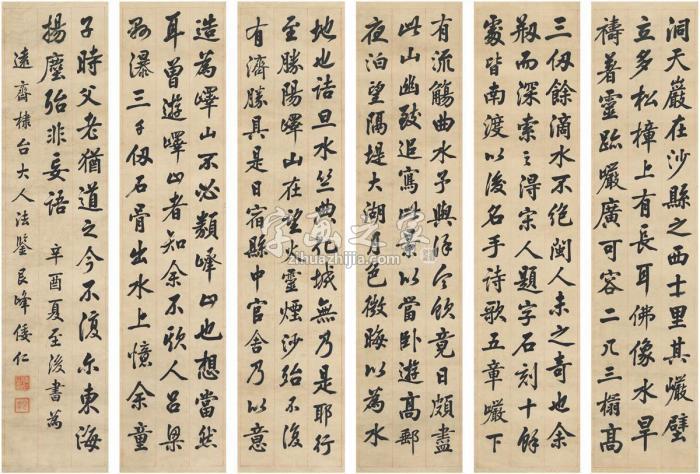 洞天巖在沙縣之西士里其巖壁
立多松樟上有長耳佛像水旱
禱著靈跡巖廣可容二几三榻高
三仞餘滴水不絕閩人未之奇也余
剏而深索之得宋人題字石刻十餘
處皆南渡以後名手詩歌五章巖下
有流觴曲水予與徐令飲竟日頗盡
此山幽致追寫此景以當臥遊高郵
夜泊望隔堤大湖月色微晦以為水
地也詰旦水竺典花城無乃是耶行
至勝陽嶧山在望火靈煙沙殆不復
有濟勝具是日宿縣中官舍乃以意
造為嶧山不必類嶧山也想當然
耳曾遊嶧山者知余不欺人呂梁
縣瀑三千仞石骨出水上憶余童
子時父老猶道之今不復爾東海
揚塵殆非妄語 辛酉夏至後書為
遠齋棣台大人法鑒艮峰倭仁
字画之家
zihuazhijia.com